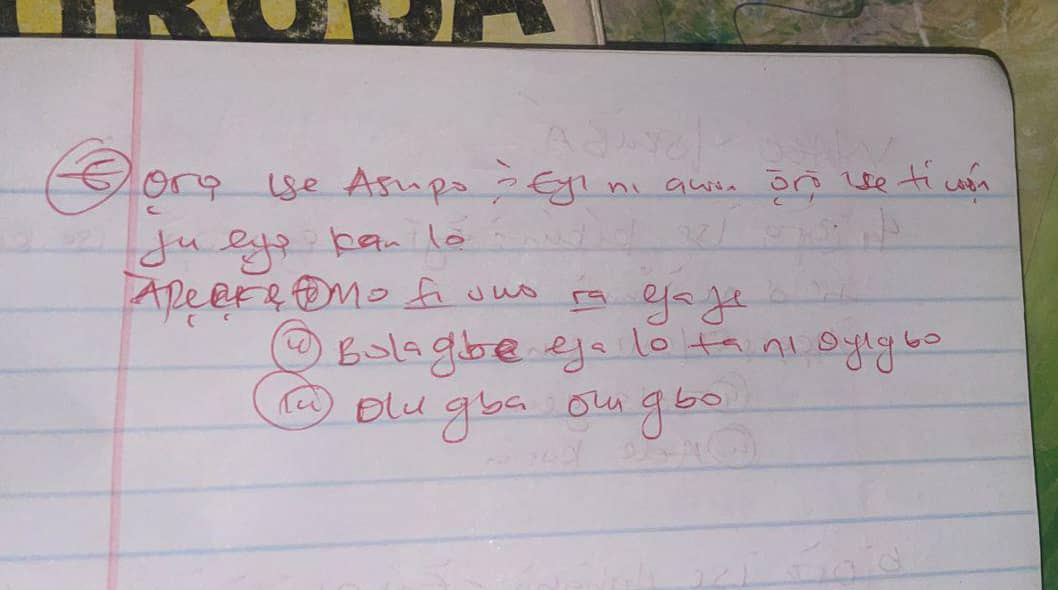 YORUBA
E ọrọ ise Asupo :- Eyi ni awon ọ̄rọ̄ ise ti wọn
ju ẹyọ kan lo
Apẹẹrẹ (i) Mo fi owo ra eja je
(ii) Bola gbe eja lo ta ni oyigbo
(iii) Olu gba omi gbo